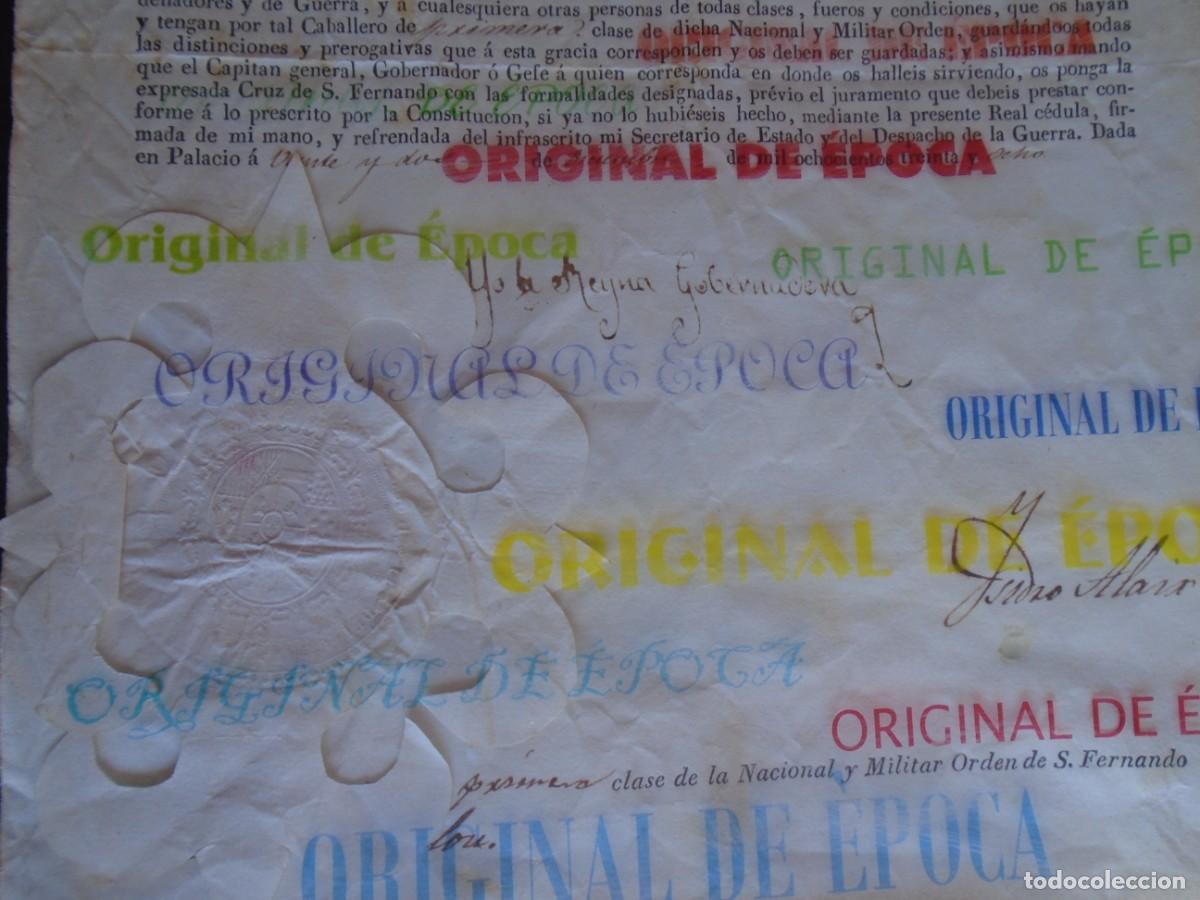 denadores y de Guerra, y á cualesquiera otras personas de todas clases, fueros y condiciones, que os hayan
y tengan por tal Caballero de primera clase de dicha Nacional y Militar Orden, guardándoos todas
las distinciones y prerogativas que á esta gracia corresponden y os deben ser guardadas; y asimismo mando
que el Capitan general, Gobernador ó Gefe á quien corresponda en donde os halleis sirviendo, os ponga la
expresada Cruz de S. Fernando con las formalidades designadas, prévio el juramento que debeis prestar con-
forme á lo prescrito por la Constitucion, si ya no lo hubiéseis hecho, mediante la presente Real cédula, fir-
mada de mi mano, y refrendada del infrascrito mi Secretario de Estado y del Despacho de la Guerra. Dada
en Palacio á veinte y dos de de mil ochocientos treinta y ocho
ORIGINAL DE ÉPOCA
Original de Época
ORIGINAL DE ÉP
Yo la Reyna Gobernadora
ORIGINAL DE ÉPOCA
ORIGINAL DE
ORIGINAL DE ÉPO
ORIGINAL DE ÉPOCA
ORIGINAL DE É
primera clase de la Nacional y Militar Orden de S. Fernando
ORIGINAL DE ÉPOCA
todocoleccion